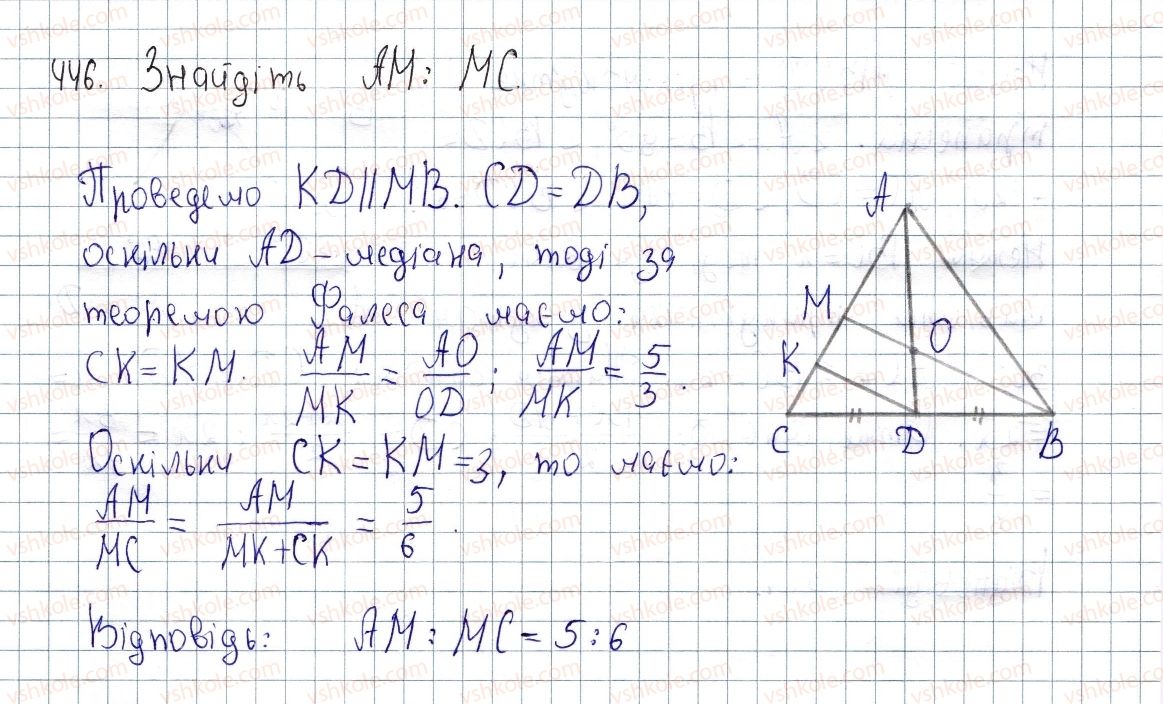 446. Знайдіть AM : MC.
Проведемо KD || MB. CD = DB,
оскільки AD – медіана, тоді за
теоремою Фалеса маємо:
CK = KM. AM/MK = AO/OD ; AM/MK = 5/3 .
Оскільки CK = KM = 3, то маємо:
AM/MC = AM/(MK + CK) = 5/6 .
Відповідь: AM : MC = 5 : 6
A
M
O
K
C D B
vshkole.com